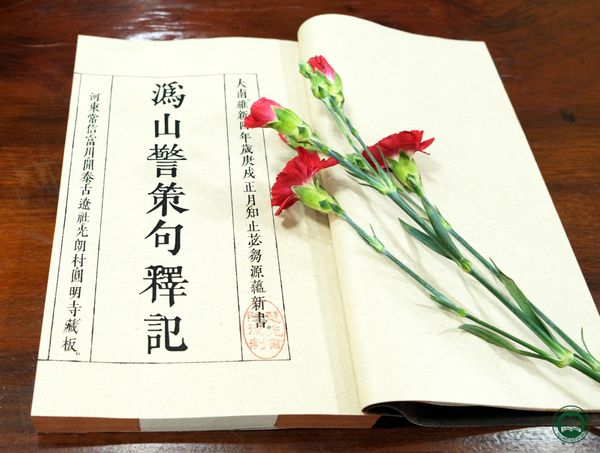 大南維新四年歲庚戌正月知止苾芻源蘊新書。
潙山警策句釋記
河東常信富川開泰古遼社光朗村圓明寺藏板。